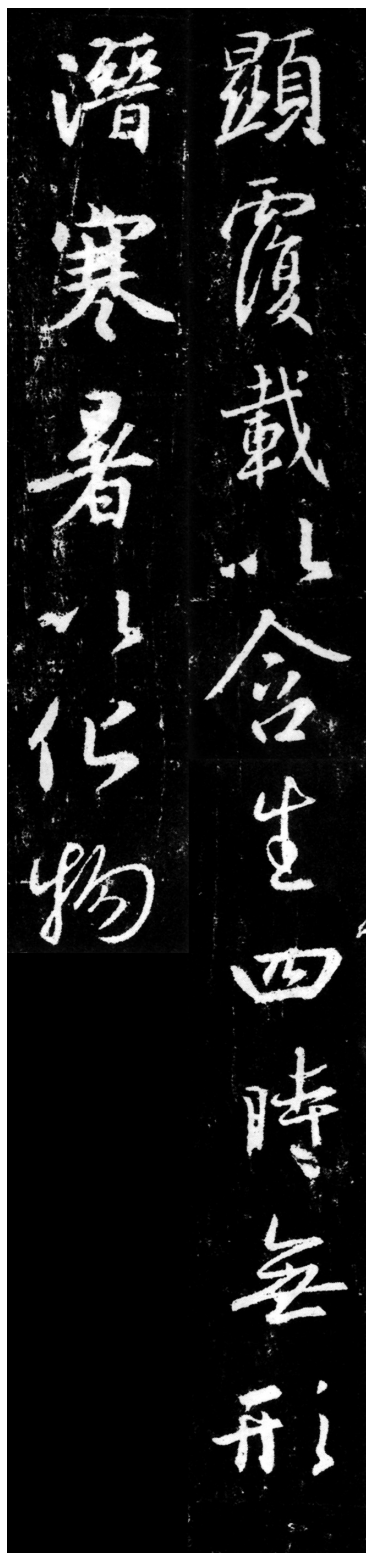 顯覆載以含生四時無形
潛寒暑以化物